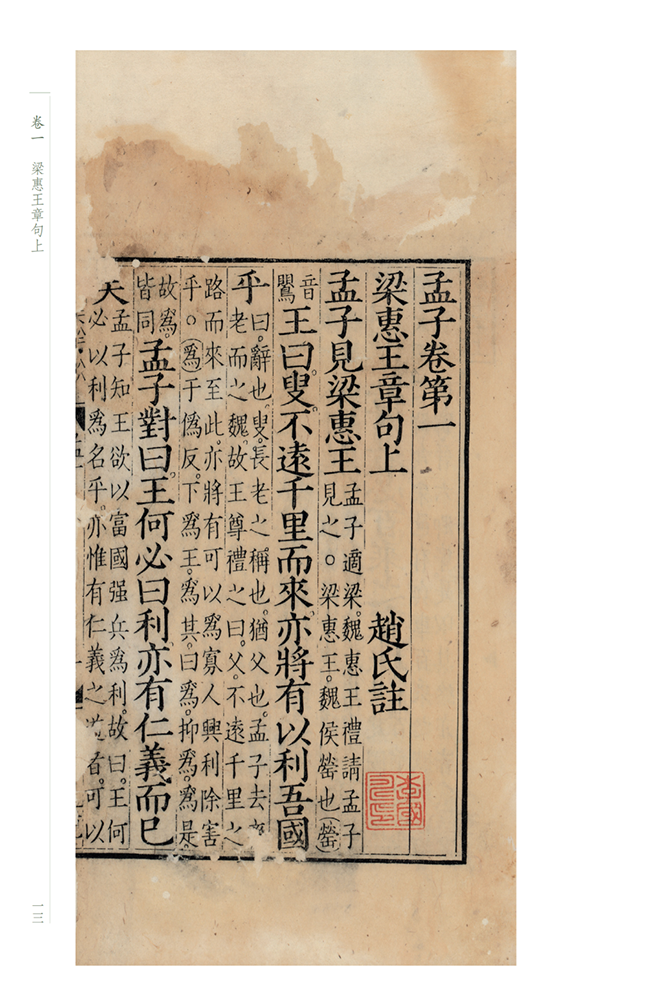 卷一　梁惠王章句上
孟子卷第一
梁惠王章句上　趙氏註
孟子見梁惠王
孟子適梁。魏惠王禮請孟子
見之○梁惠王。魏侯罃也(罃
音
鸎
王曰。叟。不遠千里而來。亦將有以利吾國
乎
曰。辭也。叟。長老之稱也。猶父也。孟子去
老而之魏。故王尊禮之曰。父。不遠千里之
路而來至此。亦將有可以爲寡人興利除害
乎。○(爲)于僞反。下爲王。爲其。曰爲。抑爲。爲是。
故爲。
皆同
孟子對曰。王何必曰利。亦有仁義而已
孟子知王欲以富國强兵爲利。故曰。王何
必以利爲名乎。亦惟有仁義之 者。可以
一三